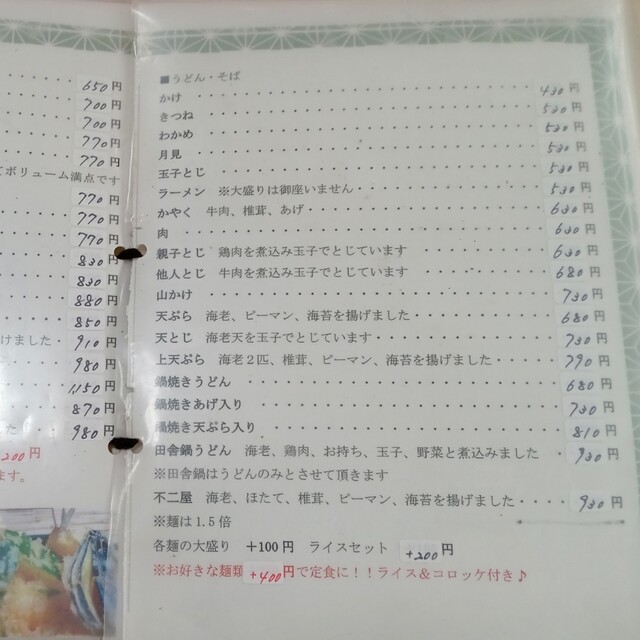 650円
700円
700円
770円
770円
てボリューム満点です
770円
770円
770円
830円
830円
880円
850円
けました・910円
980円
1150円
870円
た・980円
200円
ます。
■うどん・そば
かけ ・・・ 430円
きつね ・・・ 530円
わかめ ・・・ 530円
月見 ・・・ 530円
玉子とじ ・・・ 530円
ラーメン ※大盛りは御座いません ・・・ 530円
かやく 牛肉、椎茸、あげ ・・・ 630円
肉 ・・・ 630円
親子とじ 鶏肉を煮込み玉子でとじています ・・・ 630円
他人とじ 牛肉を煮込み玉子でとじています ・・・ 680円
山かけ ・・・ 730円
天ぷら 海老、ピーマン、海苔を揚げました ・・・ 680円
天とじ 海老天を玉子でとじています ・・・ 730円
上天ぷら 海老2匹、椎茸、ピーマン、海苔を揚げました ・・・ 790円
鍋焼きうどん ・・・ 680円
鍋焼きあげ入り ・・・ 730円
鍋焼き天ぷら入り ・・・ 810円
田舎鍋うどん 海老、鶏肉、お持ち、玉子、野菜と煮込みました ・ 930円
※田舎鍋はうどんのみとさせて頂きます
不二屋 海老、ほたて、椎茸、ピーマン、海苔を揚げました ・・・ 930円
※麺は1.5倍
各麺の大盛り +100円 ライスセット +200円
※お好きな麺類+400円で定食に!!ライス&コロッケ付き♪